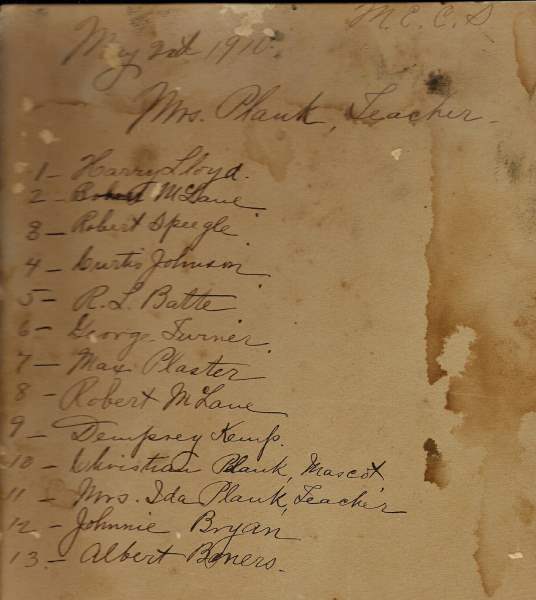 M.C.C.S
May 2nd 1910.
Mrs. Plank, Teacher.
1 - Harry Lloyd.
2 - Robert McLane
3 - Robert Speegle
4 - Curtis Johnson
5 - R. L. Batte
6 - George Turner.
7 - Max Plaster
8 - Robert McLane
9 - Dempsey Kemp.
10 - Christian Plank, Mascot
11 - Mrs. Ida Plank, Teacher
12 - Johnnie Bryan
13. - Albert